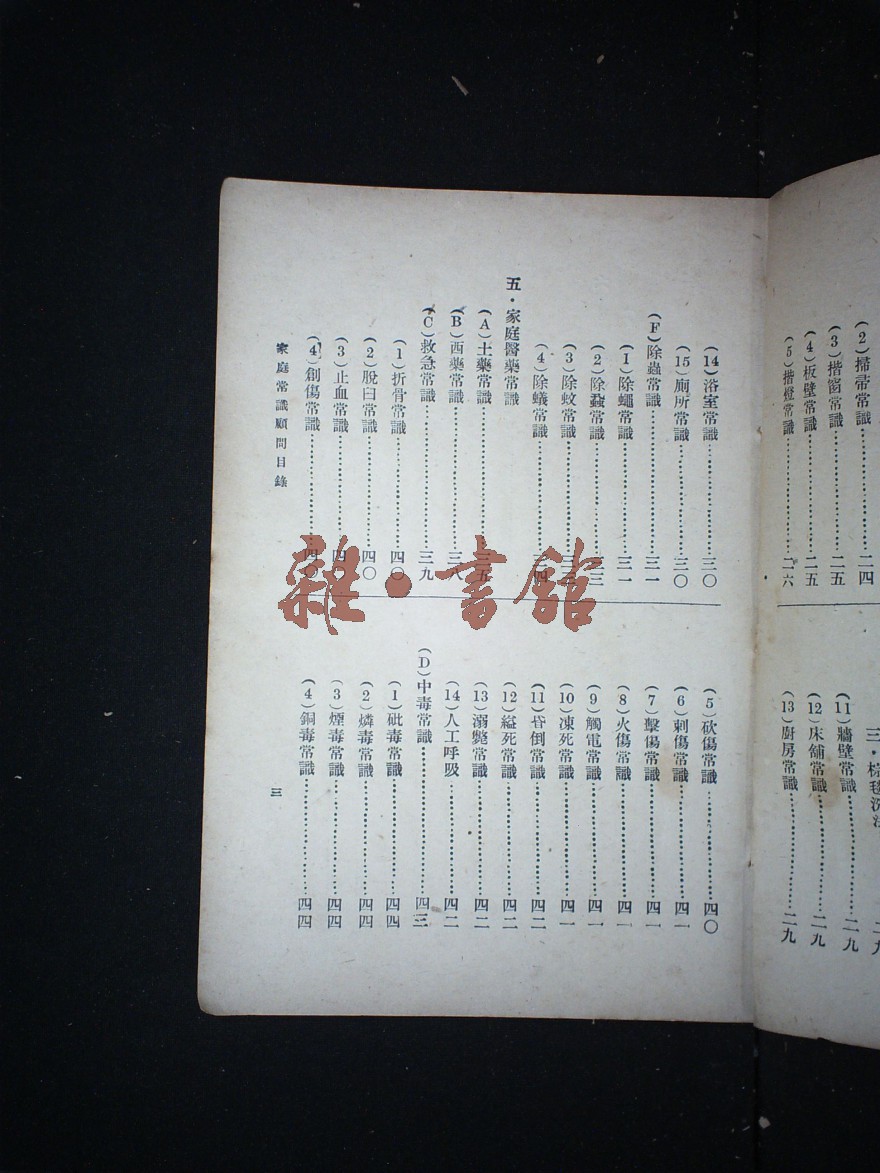 (2)掃帚常識……二四
(3)揩窗常識……二五
(4)板壁常識……二五
(5)揩燈常識……二六
三・棕毯洗法
二九
(11)牆壁常識……二九
(12)床舖常識……二九
(13)廚房常識……二九
(14)浴室常識……三〇
(15)廁所常識……三〇
(F)除蟲常識……三一
(1)除蠅常識……三一
(2)除蝨常識……
(3)除蚊常識……
(4)除蟻常識……
五・家庭醫藥常識
(A)土藥常識……三五
(B)西藥常識……三八
(C)救急常識……三九
(1)折骨常識……四〇
(2)脫臼常識……四〇
(3)止血常識……四〇
(4)創傷常識……四〇
(5)砍傷常識……四〇
(6)刺傷常識……四一
(7)擊傷常識……四一
(8)火傷常識……四一
(9)觸電常識……四一
(10)凍死常識……四一
(11)昏倒常識……四二
(12)縊死常識……四二
(13)溺斃常識……四二
(14)人工呼吸……四二
(D)中毒常識……四三
(1)砒毒常識……四四
(2)燐毒常識……四四
(3)煙毒常識……四四
(4)銅毒常識……四四
家庭常識顧問目錄
三
雜・書館